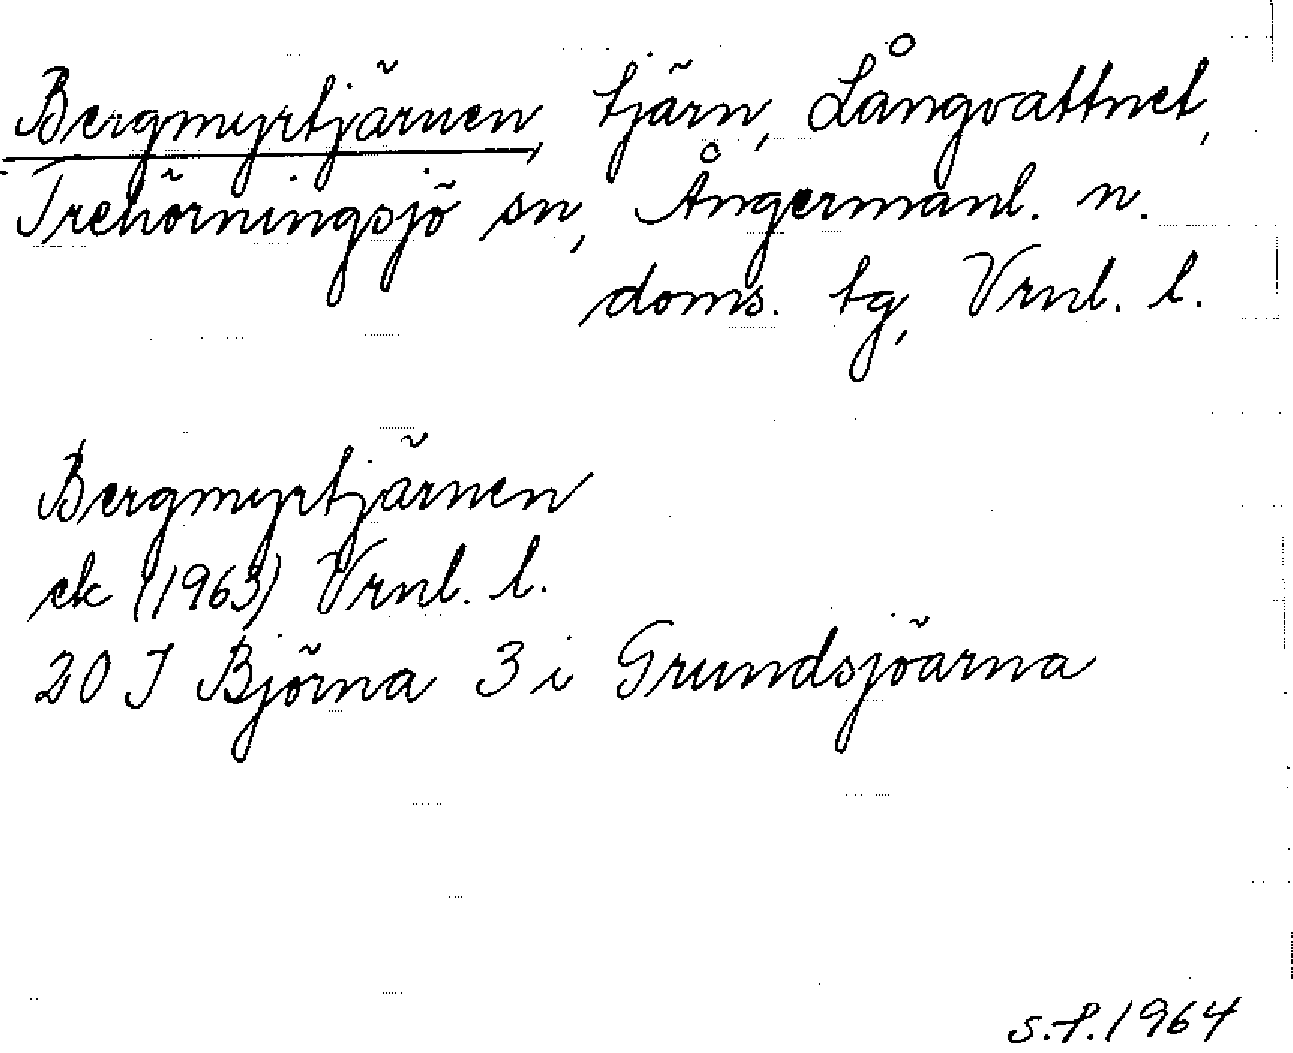 Bergmyrtjärnen, tjärn, Långvattnet,
Trehörningsjö sn, Ångermanl. n.
doms. tg, Vrnl. l.
Bergmyrtjärnen
ek (1963) Vrnl. l.
20 J Björna 3 i Grundsjöarna
s.f. 1964